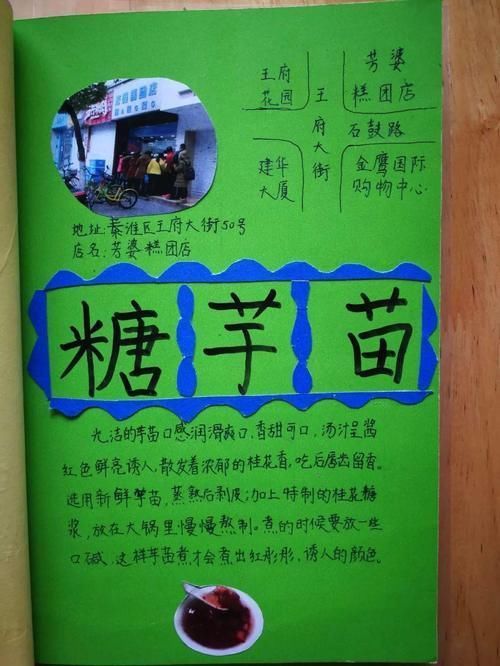 王府
花园
王
府
大
街
芳婆
糕团店
石鼓路
建华
大厦
金鹰国际
购物中心
地址:秦淮区王府大街50号
店名:芳婆糕团店
糖芋苗
光洁的芋苗口感润滑爽口,香甜可口,汤汁呈酱
红色鲜亮诱人,散发着浓郁的桂花香。吃后唇齿留香。
选用新鲜芋苗,蒸熟后剥皮;加上特制的桂花糖
浆,放在大锅里慢慢熬制。煮的时候要放一些
口碱,这样芋苗煮才会煮出红彤彤、诱人的颜色。